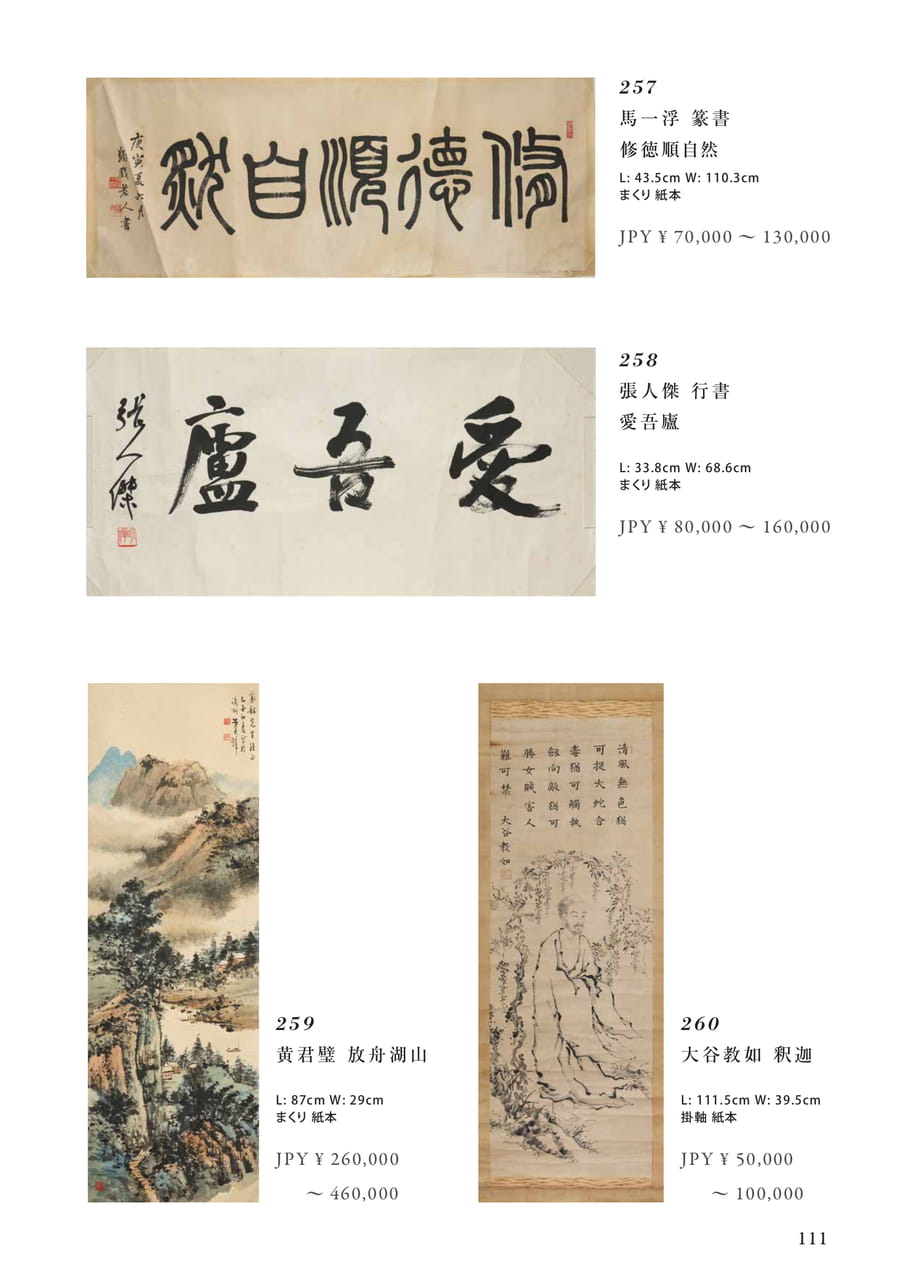 257
馬一浮 篆書
修徳順自然
L: 43.5cm W: 110.3cm
まくり 紙本
JPY ¥ 70,000 ～ 130,000
修德順自然
庚寅夏六月
蠲戲老人書
258
張人傑 行書
愛吾廬
L: 33.8cm W: 68.6cm
まくり 紙本
JPY ¥ 80,000 ～ 160,000
愛吾廬
張人傑
259
黄君璧 放舟湖山
L: 87cm W: 29cm
まくり 紙本
JPY ¥ 260,000
～ 460,000
260
大谷教如 釈迦
L: 111.5cm W: 39.5cm
掛軸 紙本
JPY ¥ 50,000
～ 100,000
清風無色猶
可捉大蛇含
毒猶可觸執
劔向敵猶可
勝女賊害人
難可禁 大谷教如
111